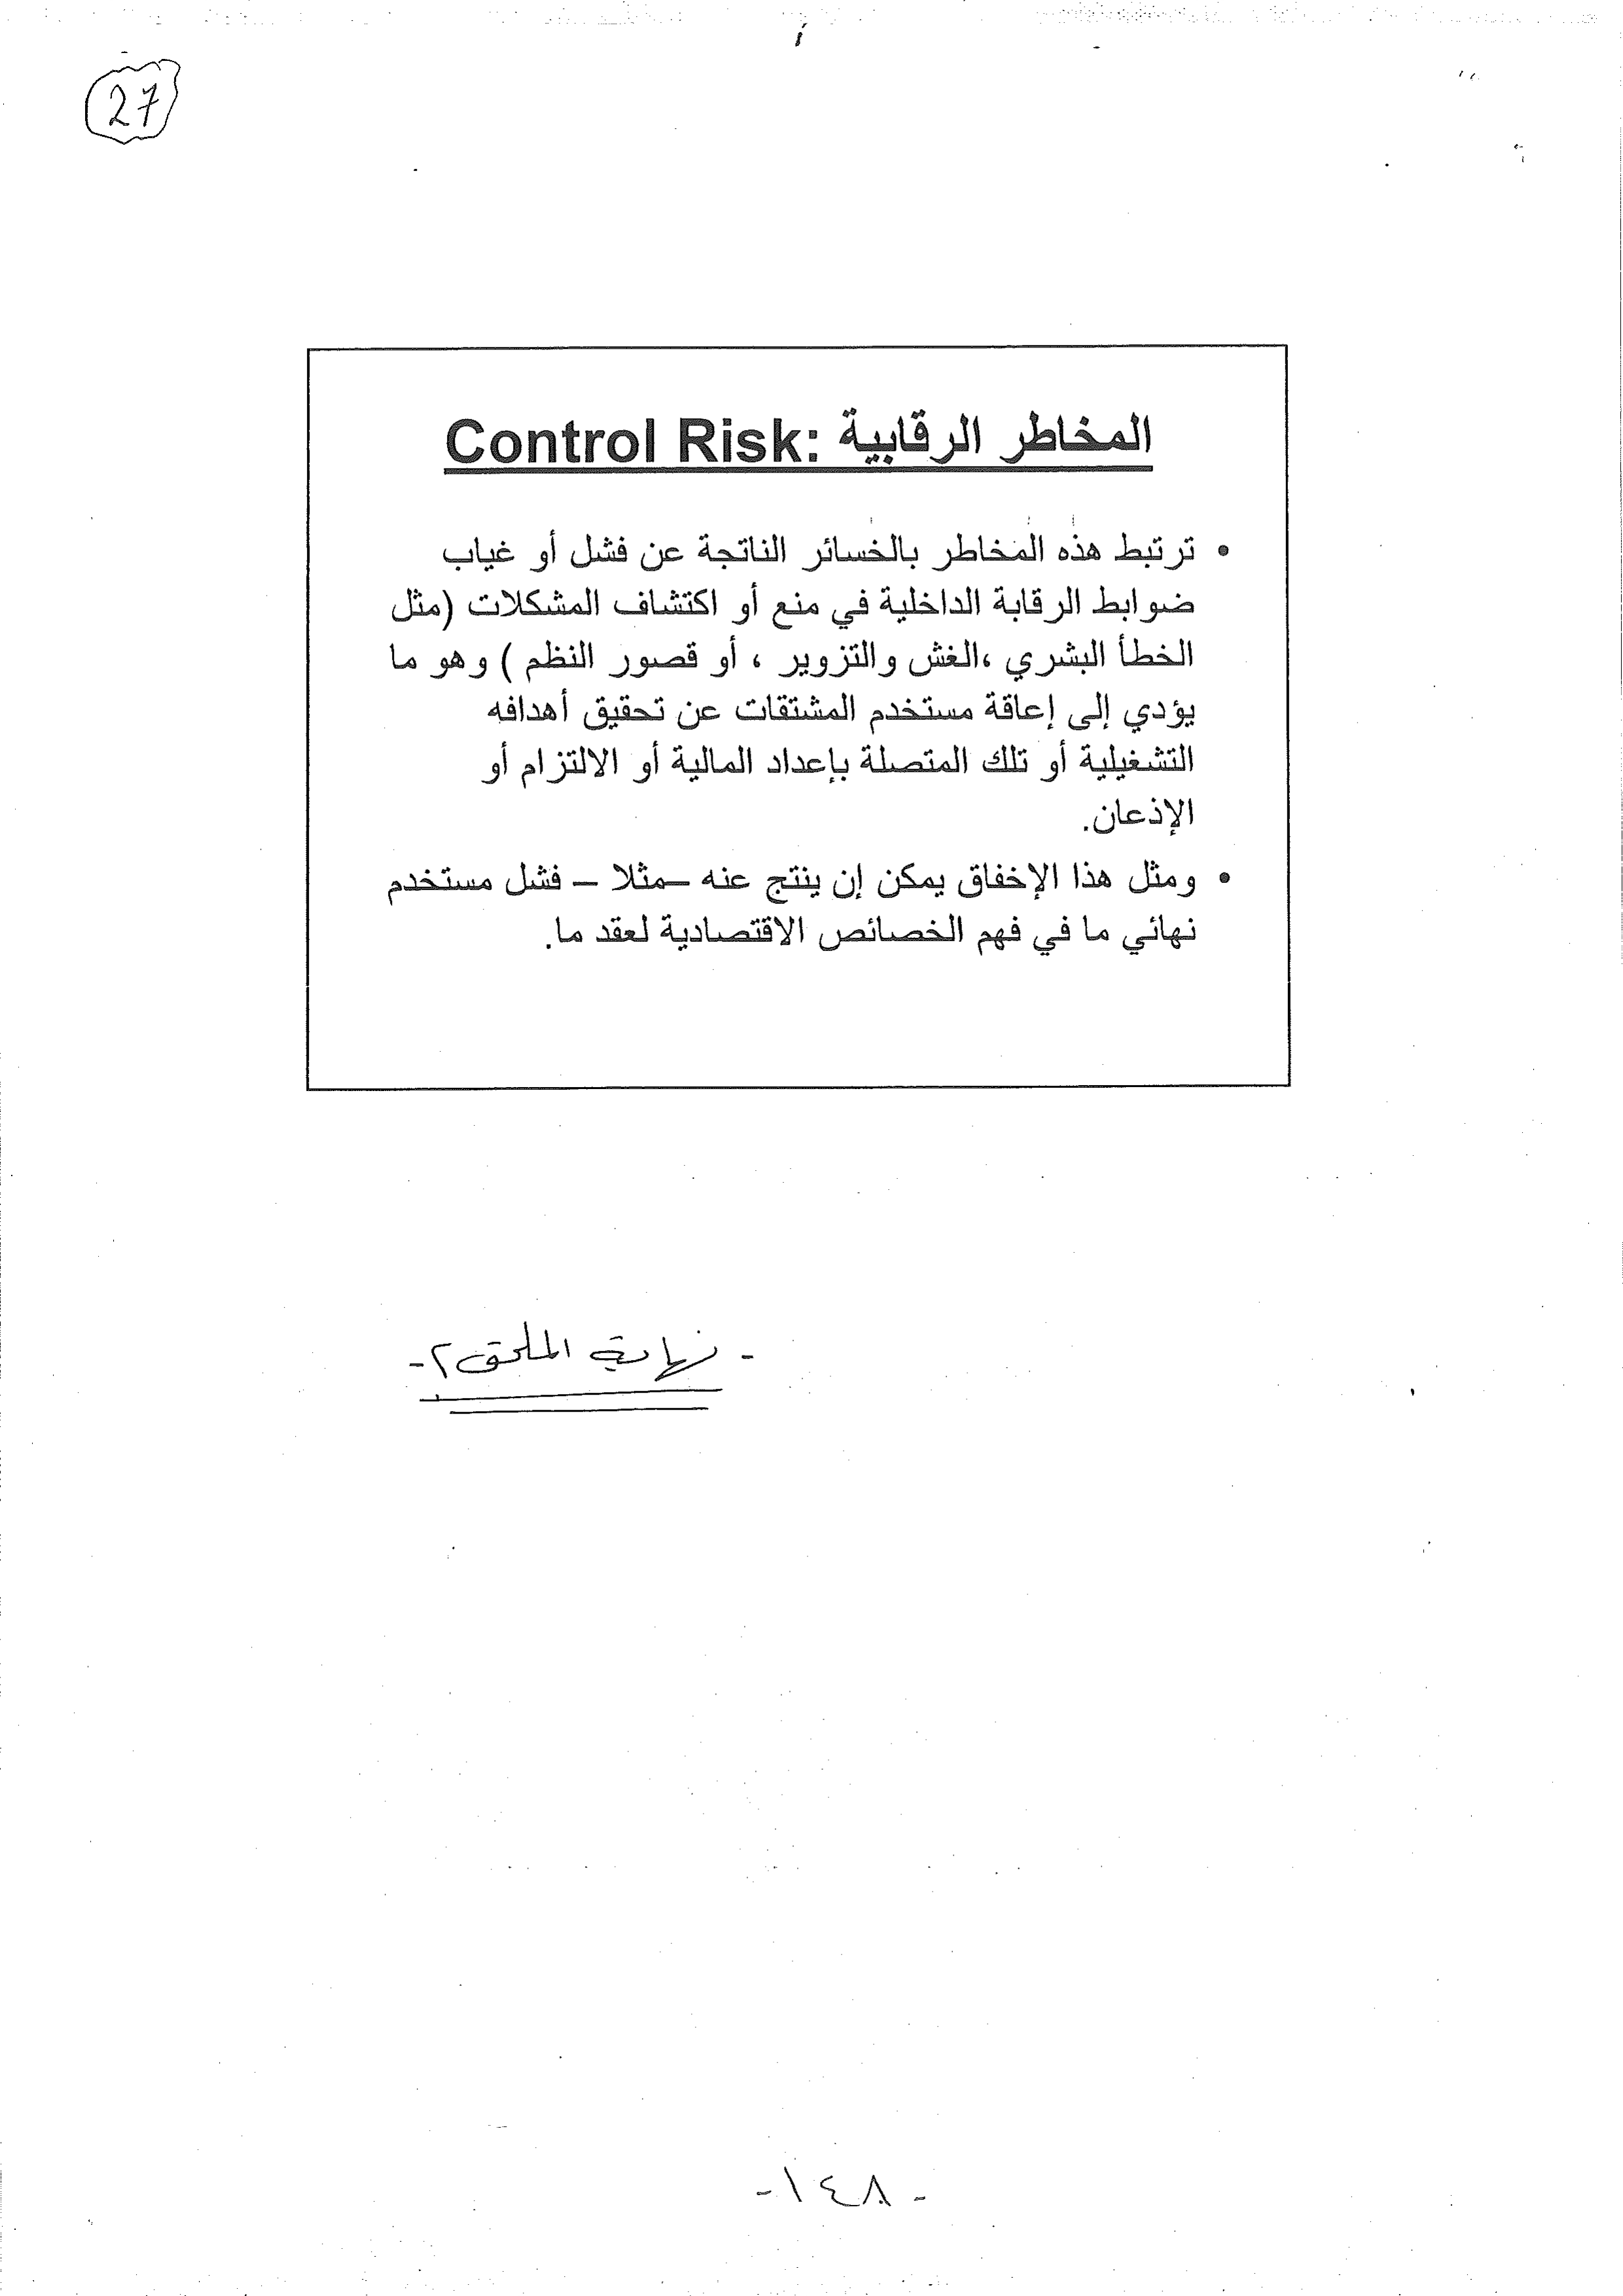 27
المخاطر الرقابية :Control Risk
• ترتبط هذه المخاطر بالخسائر الناتجة عن فشل أو غياب
ضوابط الرقابة الداخلية في منع أو اكتشاف المشكلات (مثل
الخطأ البشري ،الغش والتزوير ، أو قصور النظم ) وهو ما
يؤدي إلى إعاقة مستخدم المشتقات عن تحقيق أهدافه
التشغيلية أو تلك المتصلة بإعداد المالية أو الالتزام أو
الإذعان.
• ومثل هذا الإخفاق يمكن إن ينتج عنه –مثلا – فشل مستخدم
نهائي ما في فهم الخصائص الاقتصادية لعقد ما.
- نهاية الملحق ٢-
- ١٤٨ -